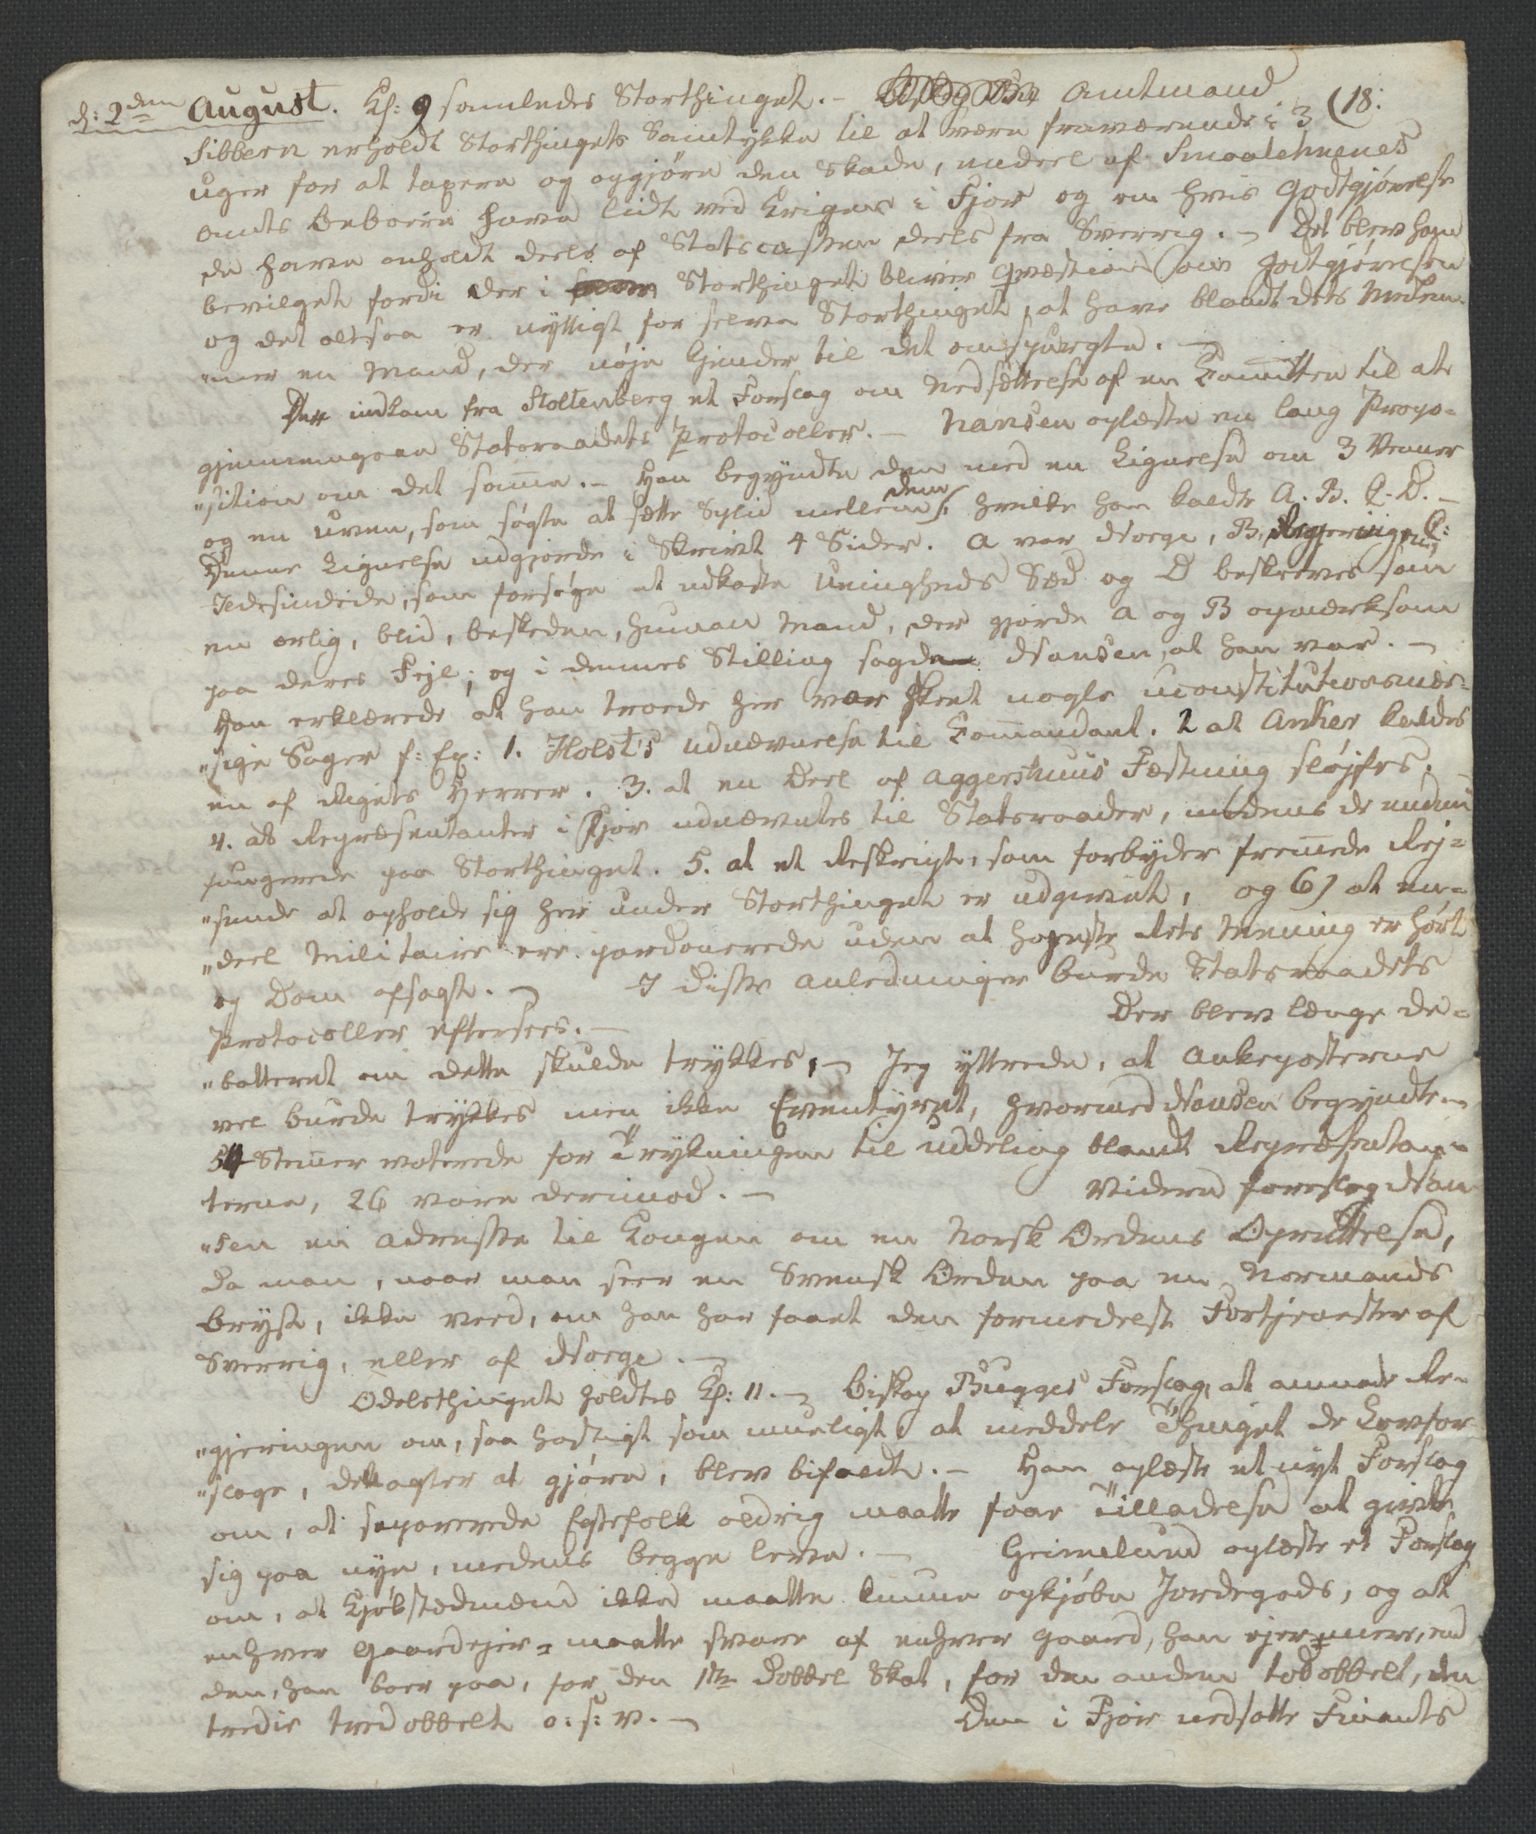 d: 2den August. Kl: 9 samledes Storthinget. – Amtmand (18:
Sibbern erholdt Storthingets Samtykke til at være fraværende i 3
uger for at taxere og opgjøre den Skade, endeel af Smaalehnenes
Amts Beboere have lidt ved Krigen i Fjor og om hvis Godtgjørelse
de have anholdt deels af Statscassen deels fra Sverrig. – Det blev ham
bevilget fordi der i Storthinget bliver Qvæstion om Godtgjørelsen
og det altsaa er nyttigt for selve Storthinget, at have blandt dets Medlem-
"mer en Mand, der nøje kjender til det omspurgte. –
Der indkom fra Stoltenberg et Forslag om Nedsættelse af en Committee til at
gjennemgaae Statsraadets Protocoller. – Nansen oplæste en lang Propo-
"sition om det samme. – Han begyndte den med en Lignelse om 3 Venner
og en Uven, som søgte at sætte Splid mellem dem, hvilke han kaldte A. B. C. D. –
Denne Lignelse udgjorde i Skrivt 4 Sider. A var Norge, B. Regjeringen, C:
Ildesindede, som forsøge at udkaste Uenigheds Sæd og D beskreves som
en ærlig, blid, beskeden, human Mand, der gjorde A og B opmærksom
paa deres Fejl; og i dennes Stilling sagde Nansen, at han var. –
Han erklærede at han troede her var skeet nogle uconstitutionsmæs-
"sige Sager f: Ex: 1. Holst's Udnævnelse til Commandant. 2 at Anker kaldes
en af Rigets Herrer. 3. at en Deel af Aggershuus Fæstning sløjfes.
4. at Repræsentanter i Fjor udnævntes til Statsraader, medens de endnu
fungerede paa Storthinget. 5. at et Reskript, som forbyder fremmede Rej-
"sende at opholde sig her under Storthinget er udgivet, og 6) at en-
"deel Militaire ere pardonerede uden at Højeste Rets Mening er hørt
og Dom afsagt. – I disse Anledninger burde Statsraadets
Protocoller eftersees. – Der blev længe de-
"batteret om dette skulde trykkes, – Jeg yttrede, at Ankeposterne
vel burde trykkes men ikke Eventyret, hvormed Nansen begyndte. –
54 Stemmer voterede for Trykningen til Uddeling blandt Repræsentan-
terne, 26 vare derimod. – Videre foreslog Nan-
"sen en Adresse til Kongen om en Norsk Ordens Oprettelse,
da man, naar man seer en Svensk Orden paa en Normands
Bryst, ikke veed, om han har faaet den formedelst Fortjenester af
Sverrig, eller af Norge. –
Odelsthinget holdtes Kl: 11. – Biskop Bugges Forslag, at anmode Re-
"gjeringen om, saa hastigt som mueligt, at meddele Thinget de Lovfor-
"slage, det agter at gjøre, blev bifaldt. – Han oplæste et nyt Forslag
om, at separerede Egtefolk aldrig maatte faae Tilladelse at givte
sig paa nye, medens begge leve. – Grimelund oplæste et Forslag
om, at Kjøbstedmænd ikke maatte kunne opkjøbe Jordegods, og at
enhver Gaardejer maatte svare af enhver Gaard, han ejer meer, end
den, han boer paa, for den 1ste Dobbel Skat, for den anden todobbelt, den
tredie tredobbelt o: s: v. – Den i Fjor nedsatte Finants